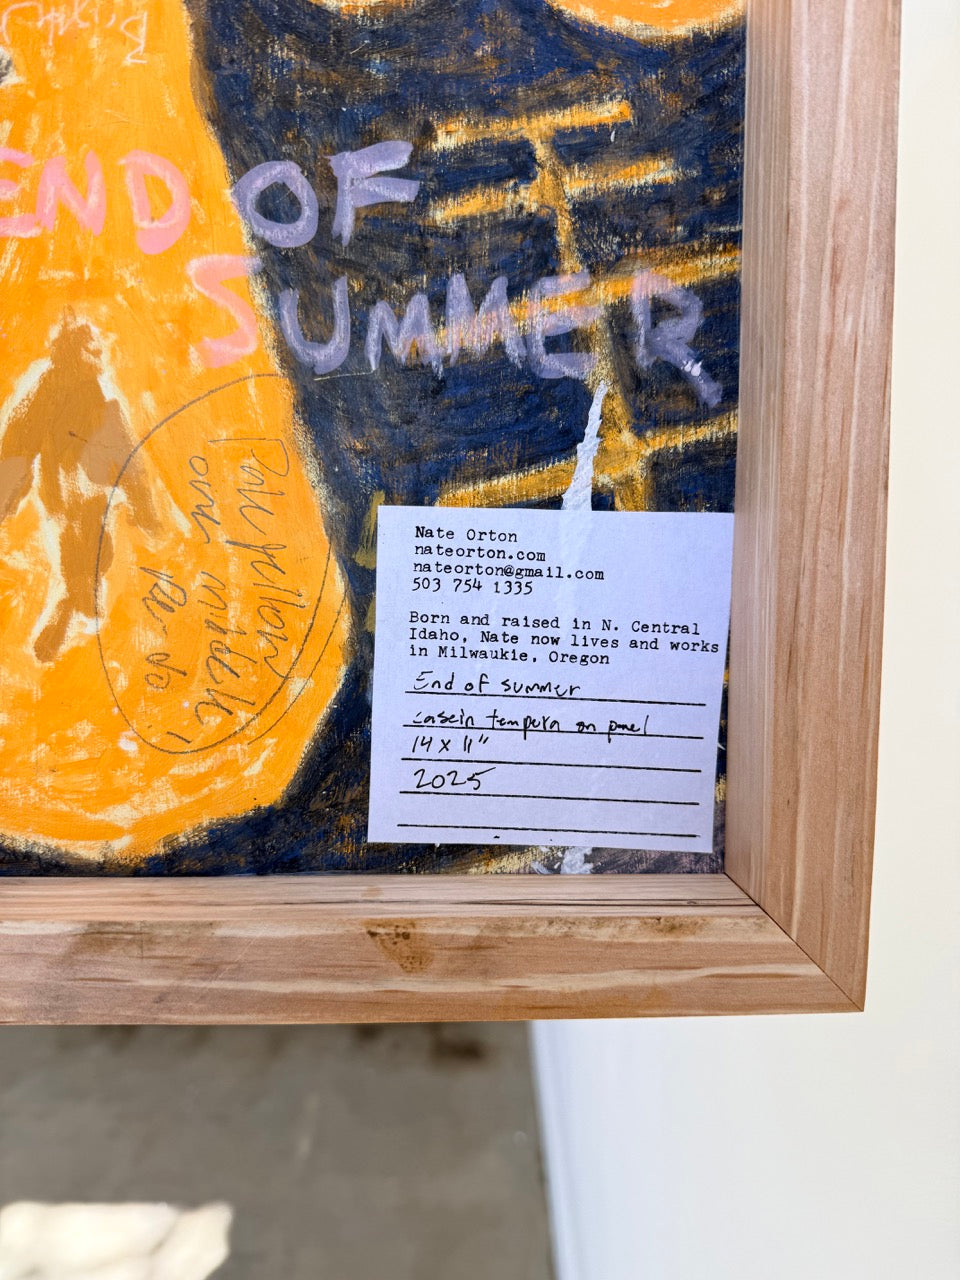 END OF
SUMMER
Pale yellow
over middle
Nate Orton
nateorton.com
nateorton@gmail.com
503 754 1335
Born and raised in N. Central
Idaho, Nate now lives and works
in Milwaukie, Oregon
End of summer
casein tempera on panel
14 x 11"
2025